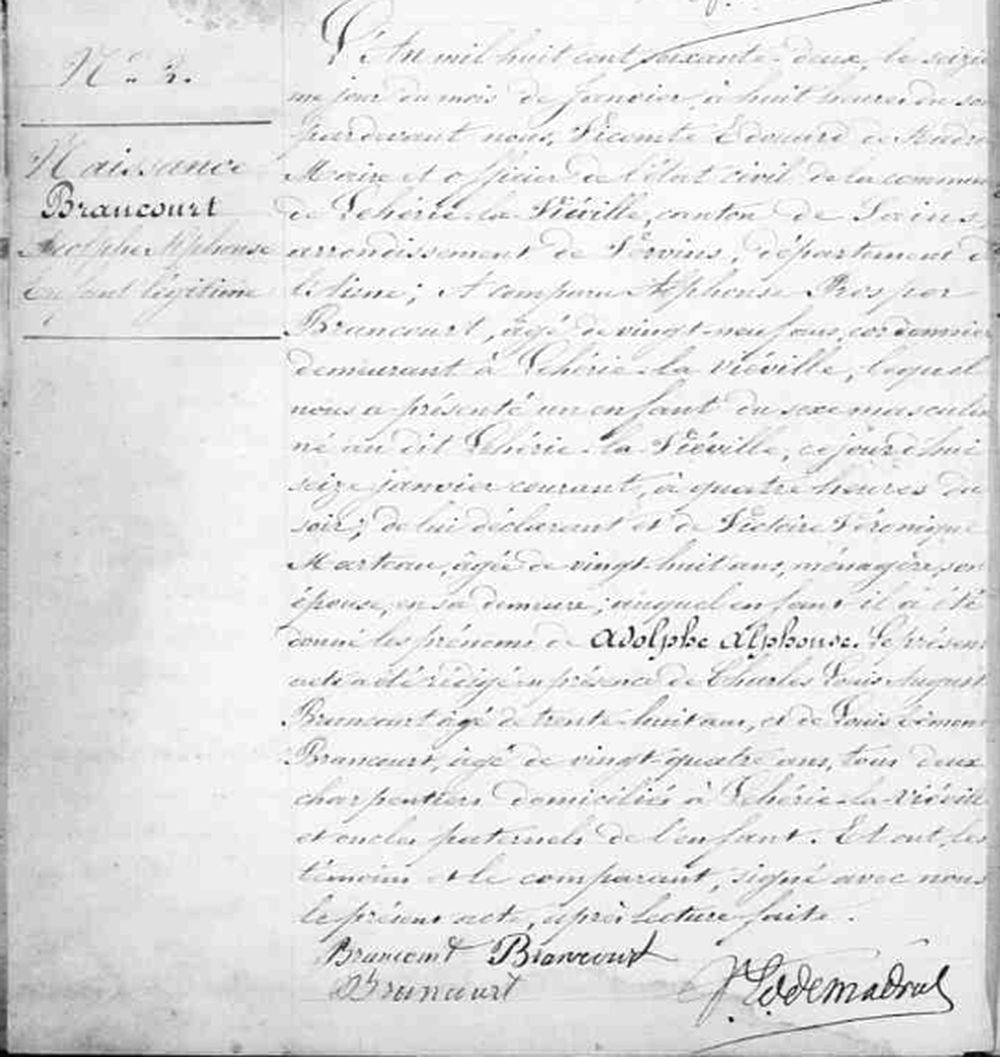 N° 3.
Naissance
Brancourt
Adolphe Alphonse
Enfant légitime
L'An mil huit cent soixante-deux, le seiziè
me jour du mois de janvier, à huit heures du soir
pardevant nous, Vicomte Edouard de Madrid
Maire et officier de l'état civil de la commune
de Lehérie-la-Viéville, canton de Sains,
arrondissement de Vervins, département de
l'Aisne; A comparu Alphonse Prosper
Brancourt, âgé de vingt-neuf ans, cordonnier
demeurant à Lehérie-la-Viéville, lequel
nous a présenté un enfant du sexe masculin
né au dit Lehérie-la-Viéville, cejourd'hui
seize janvier courant, à quatre heures du
soir; de lui déclarant et de Victoire Véronique
Marteau, âgée de vingt-huit ans, ménagère, son
épouse, en sa demeure; auquel enfant il a été
donné les prénoms de Adolphe Alphonse. Le présent
acte a été rédigé en présence de Charles Louis August
Brancourt âgé de trente-huit ans, et de Louis
Brancourt, âgé de vingt-quatre ans, tous deux
charpentiers domiciliés à Lehérie-la-Viéville
et oncles paternels de l'enfant. Et ont, les
témoins et le comparant, signé avec nous
le présent acte, après lecture faite.
Brancourt Brancourt
Brancourt